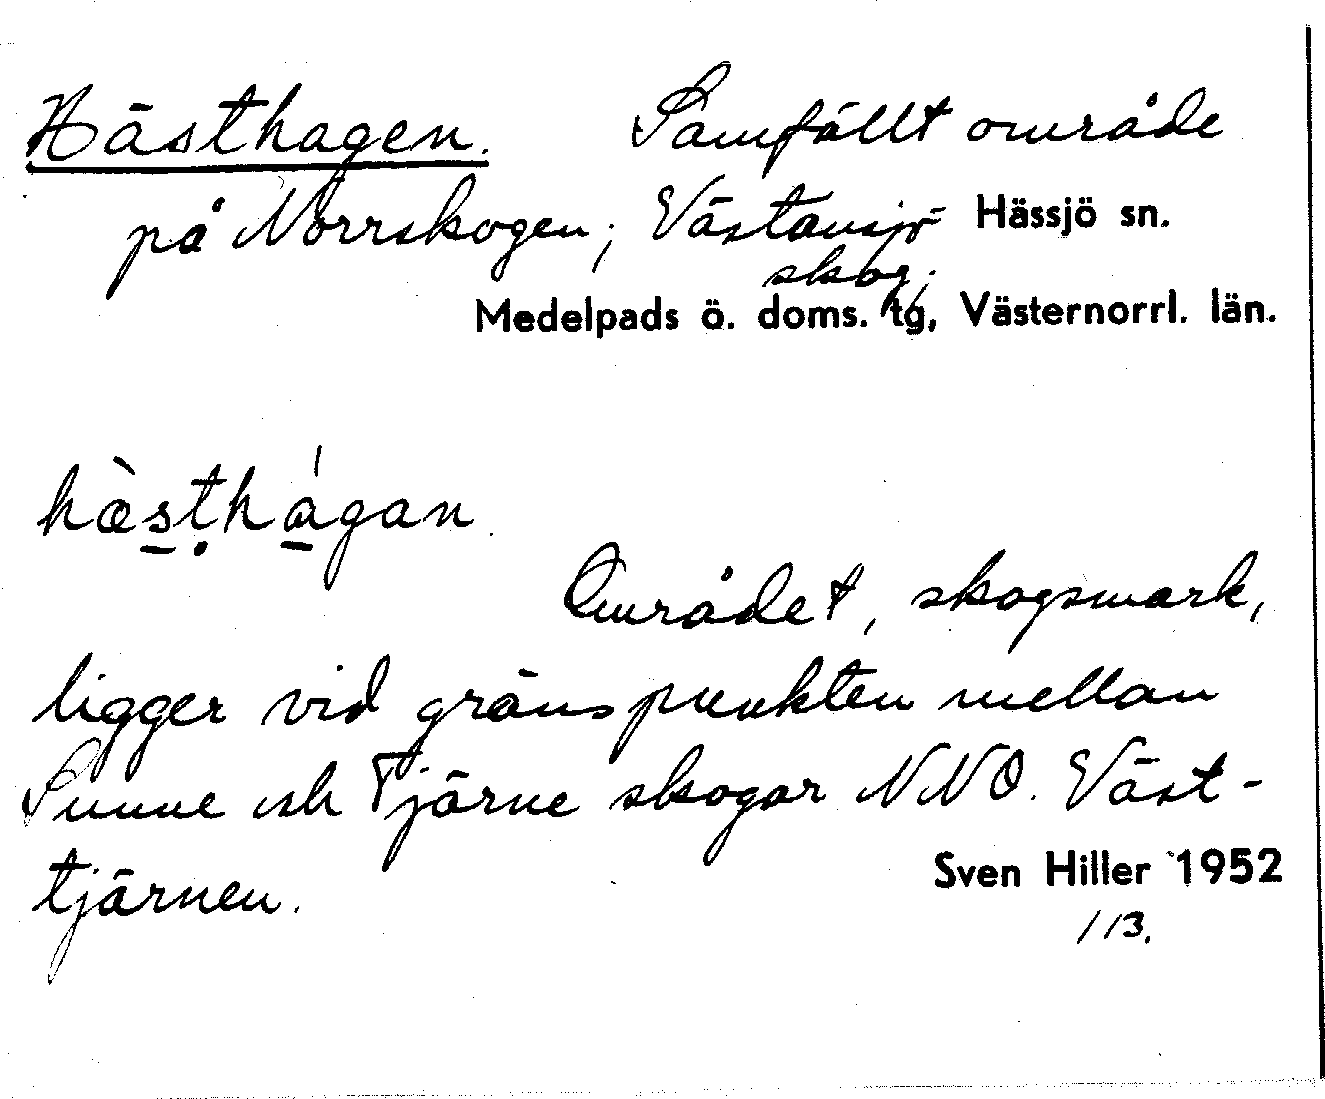 Hästhagen. Samfällt område
på Norrskogen, Västansjö- Hässjö sn.
skog.
Medelpads ö. doms. tg, Västernorrl. län.
hæ̀st̩há̱gan
Området, skogsmark,
ligger vid gränspunkten mellan
Sunne och Tjärne skogar NNO. Väst-
tjärnen.
Sven Hiller 1952
113.